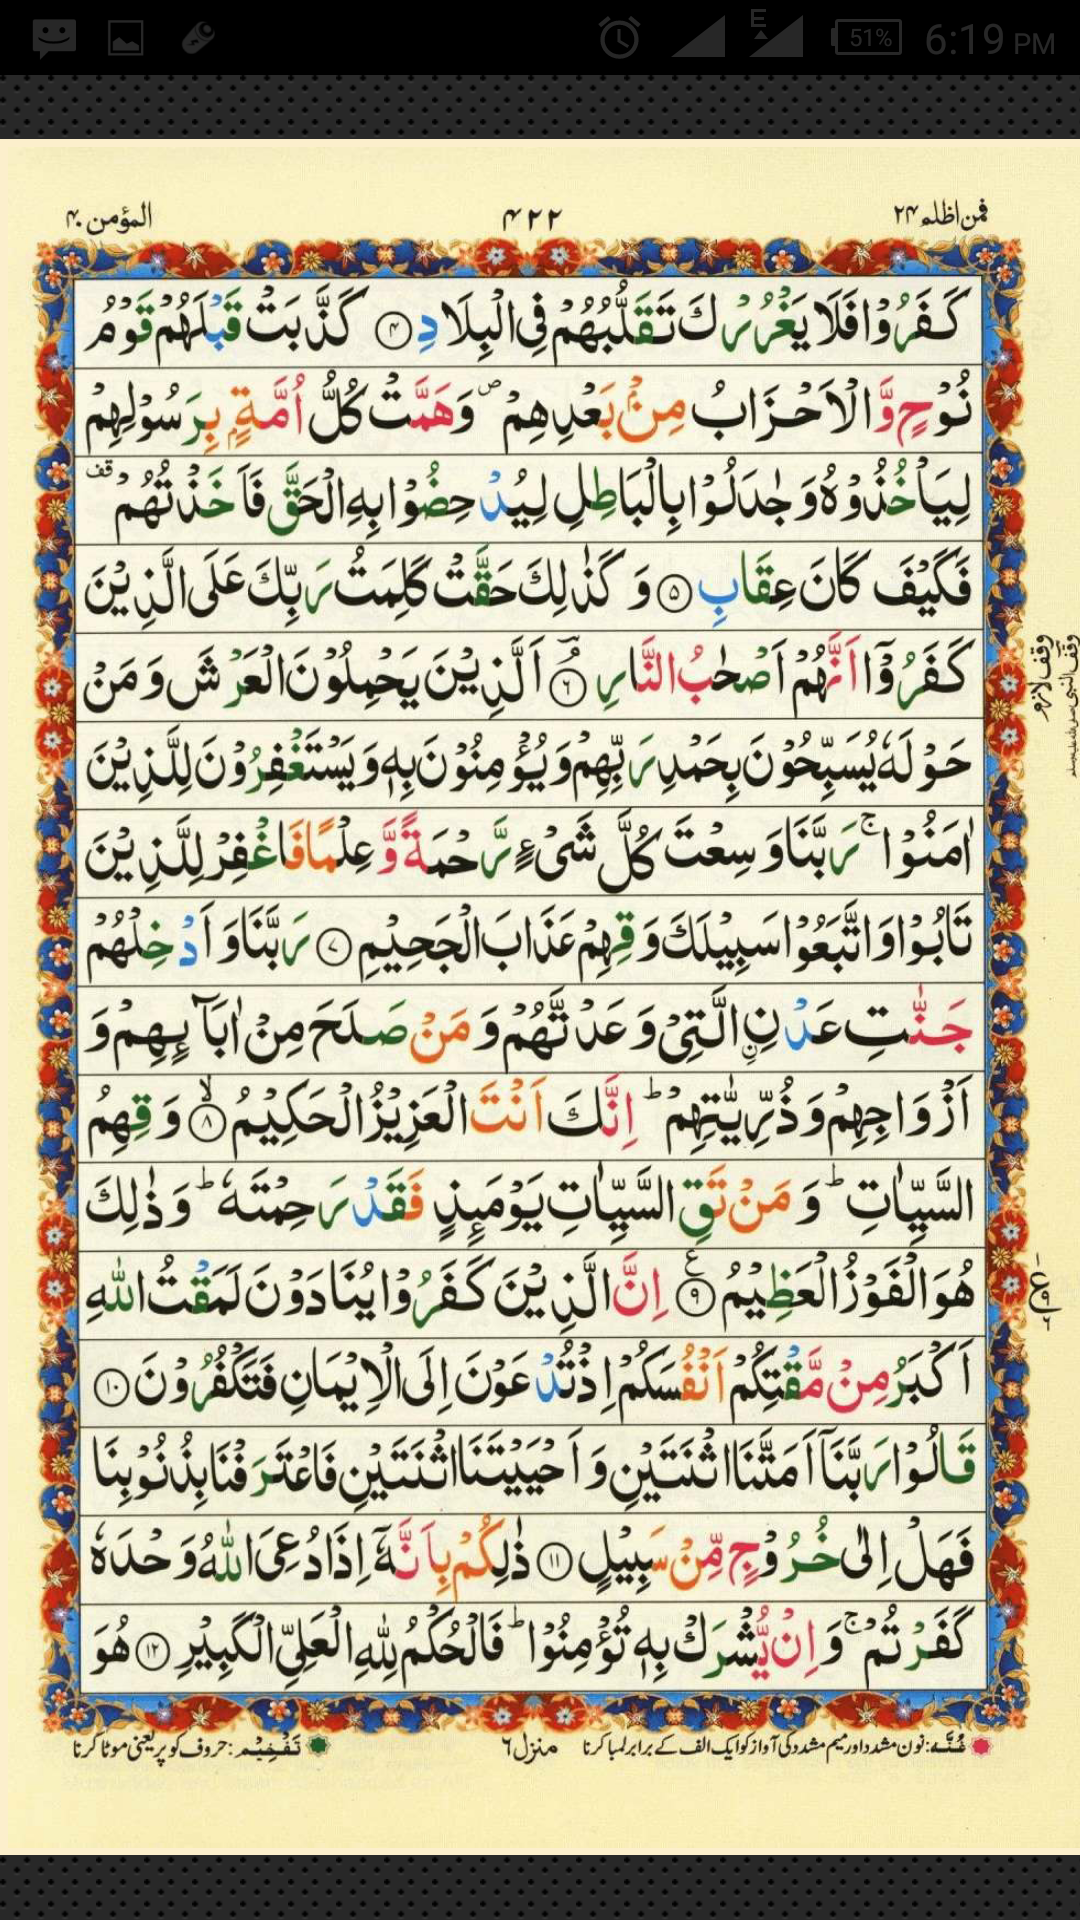 51% 6:19 PM
فمن اظلم ۲۴ ۴۲۲ المؤمن ۴۰
كَفَرُوْا فَلَا يَغْرُرْكَ تَقَلُّبُهُمْ فِى الْبِلَادِ ۝۴ كَذَّبَتْ قَبْلَهُمْ قَوْمُ
نُوْحٍ وَّالْاَحْزَابُ مِنْۢ بَعْدِهِمْ ۪ وَهَمَّتْ كُلُّ اُمَّةٍۭ بِرَسُوْلِهِمْ
لِيَاْخُذُوْهُ وَجٰدَلُوْا بِالْبَاطِلِ لِيُدْحِضُوْا بِهِ الْحَقَّ فَاَخَذْتُهُمْ قف
فَكَيْفَ كَانَ عِقَابِ ۝۵ وَكَذٰلِكَ حَقَّتْ كَلِمَتُ رَبِّكَ عَلَى الَّذِيْنَ
كَفَرُوْۤا اَنَّهُمْ اَصْحٰبُ النَّارِ ۝۶ۘ اَلَّذِيْنَ يَحْمِلُوْنَ الْعَرْشَ وَمَنْ
وقف لازم
حَوْلَهٗ يُسَبِّحُوْنَ بِحَمْدِ رَبِّهِمْ وَيُؤْمِنُوْنَ بِهٖ وَيَسْتَغْفِرُوْنَ لِلَّذِيْنَ
اٰمَنُوْا ۚ رَبَّنَا وَسِعْتَ كُلَّ شَىْءٍ رَّحْمَةً وَّعِلْمًا فَاغْفِرْ لِلَّذِيْنَ
تَابُوْا وَاتَّبَعُوْا سَبِيْلَكَ وَقِهِمْ عَذَابَ الْجَحِيْمِ ۝۷ رَبَّنَا وَاَدْخِلْهُمْ
جَنّٰتِ عَدْنِ ۨالَّتِىْ وَعَدْتَّهُمْ وَمَنْ صَلَحَ مِنْ اٰبَآئِهِمْ وَ
اَزْوَاجِهِمْ وَذُرِّيّٰتِهِمْ ؕ اِنَّكَ اَنْتَ الْعَزِيْزُ الْحَكِيْمُ ۝۸ۙ وَقِهِمُ
السَّيِّاٰتِ ؕ وَمَنْ تَقِ السَّيِّاٰتِ يَوْمَئِذٍ فَقَدْ رَحِمْتَهٗ ؕ وَذٰلِكَ
هُوَ الْفَوْزُ الْعَظِيْمُ ۝۹ ع اِنَّ الَّذِيْنَ كَفَرُوْا يُنَادَوْنَ لَمَقْتُ اللّٰهِ
اَكْبَرُ مِنْ مَّقْتِكُمْ اَنْفُسَكُمْ اِذْ تُدْعَوْنَ اِلَى الْاِيْمَانِ فَتَكْفُرُوْنَ ۝۱۰
قَالُوْا رَبَّنَآ اَمَتَّنَا اثْنَتَيْنِ وَاَحْيَيْتَنَا اثْنَتَيْنِ فَاعْتَرَفْنَا بِذُنُوْبِنَا
فَهَلْ اِلٰى خُرُوْجٍ مِّنْ سَبِيْلٍ ۝۱۱ ذٰلِكُمْ بِاَنَّهٗۤ اِذَا دُعِىَ اللّٰهُ وَحْدَهٗ
كَفَرْتُمْ ۚ وَاِنْ يُّشْرَكْ بِهٖ تُؤْمِنُوْا ؕ فَالْحُكْمُ لِلّٰهِ الْعَلِىِّ الْكَبِيْرِ ۝۱۲ هُوَ
غُنَّه: نون مشدد اور میم مشدد کی آواز کو ایک الف کے برابر لمبا کرنا منزل ٦ تَفْخِيْم: حروف کو پر یعنی موٹا کرنا